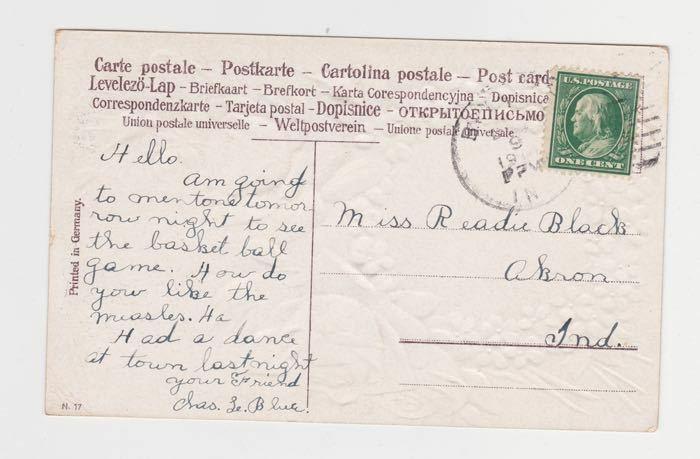 Carte postale – Postkarte – Cartolina postale – Post card
Levelező-Lap – Briefkaart – Brefkort – Karta Corespondencyjna – Dopisnica
Correspondenzkarte – Tarjeta postal – Dopisnice – ОТКРЫТОЕПИСЬМО
Union postale universelle – Weltpostverein – Unione postale universale.
U.S. POSTAGE
ONE CENT
PM
IN
Hello.
am going
to mentone tomor
row night to see
the basket ball
game. How do
you like the
measles. Ha
Had a dance
at town last night
your Friend
Chas. Le Blue.
Miss Readie Black
Akron
Ind.
Printed in Germany.
N. 17